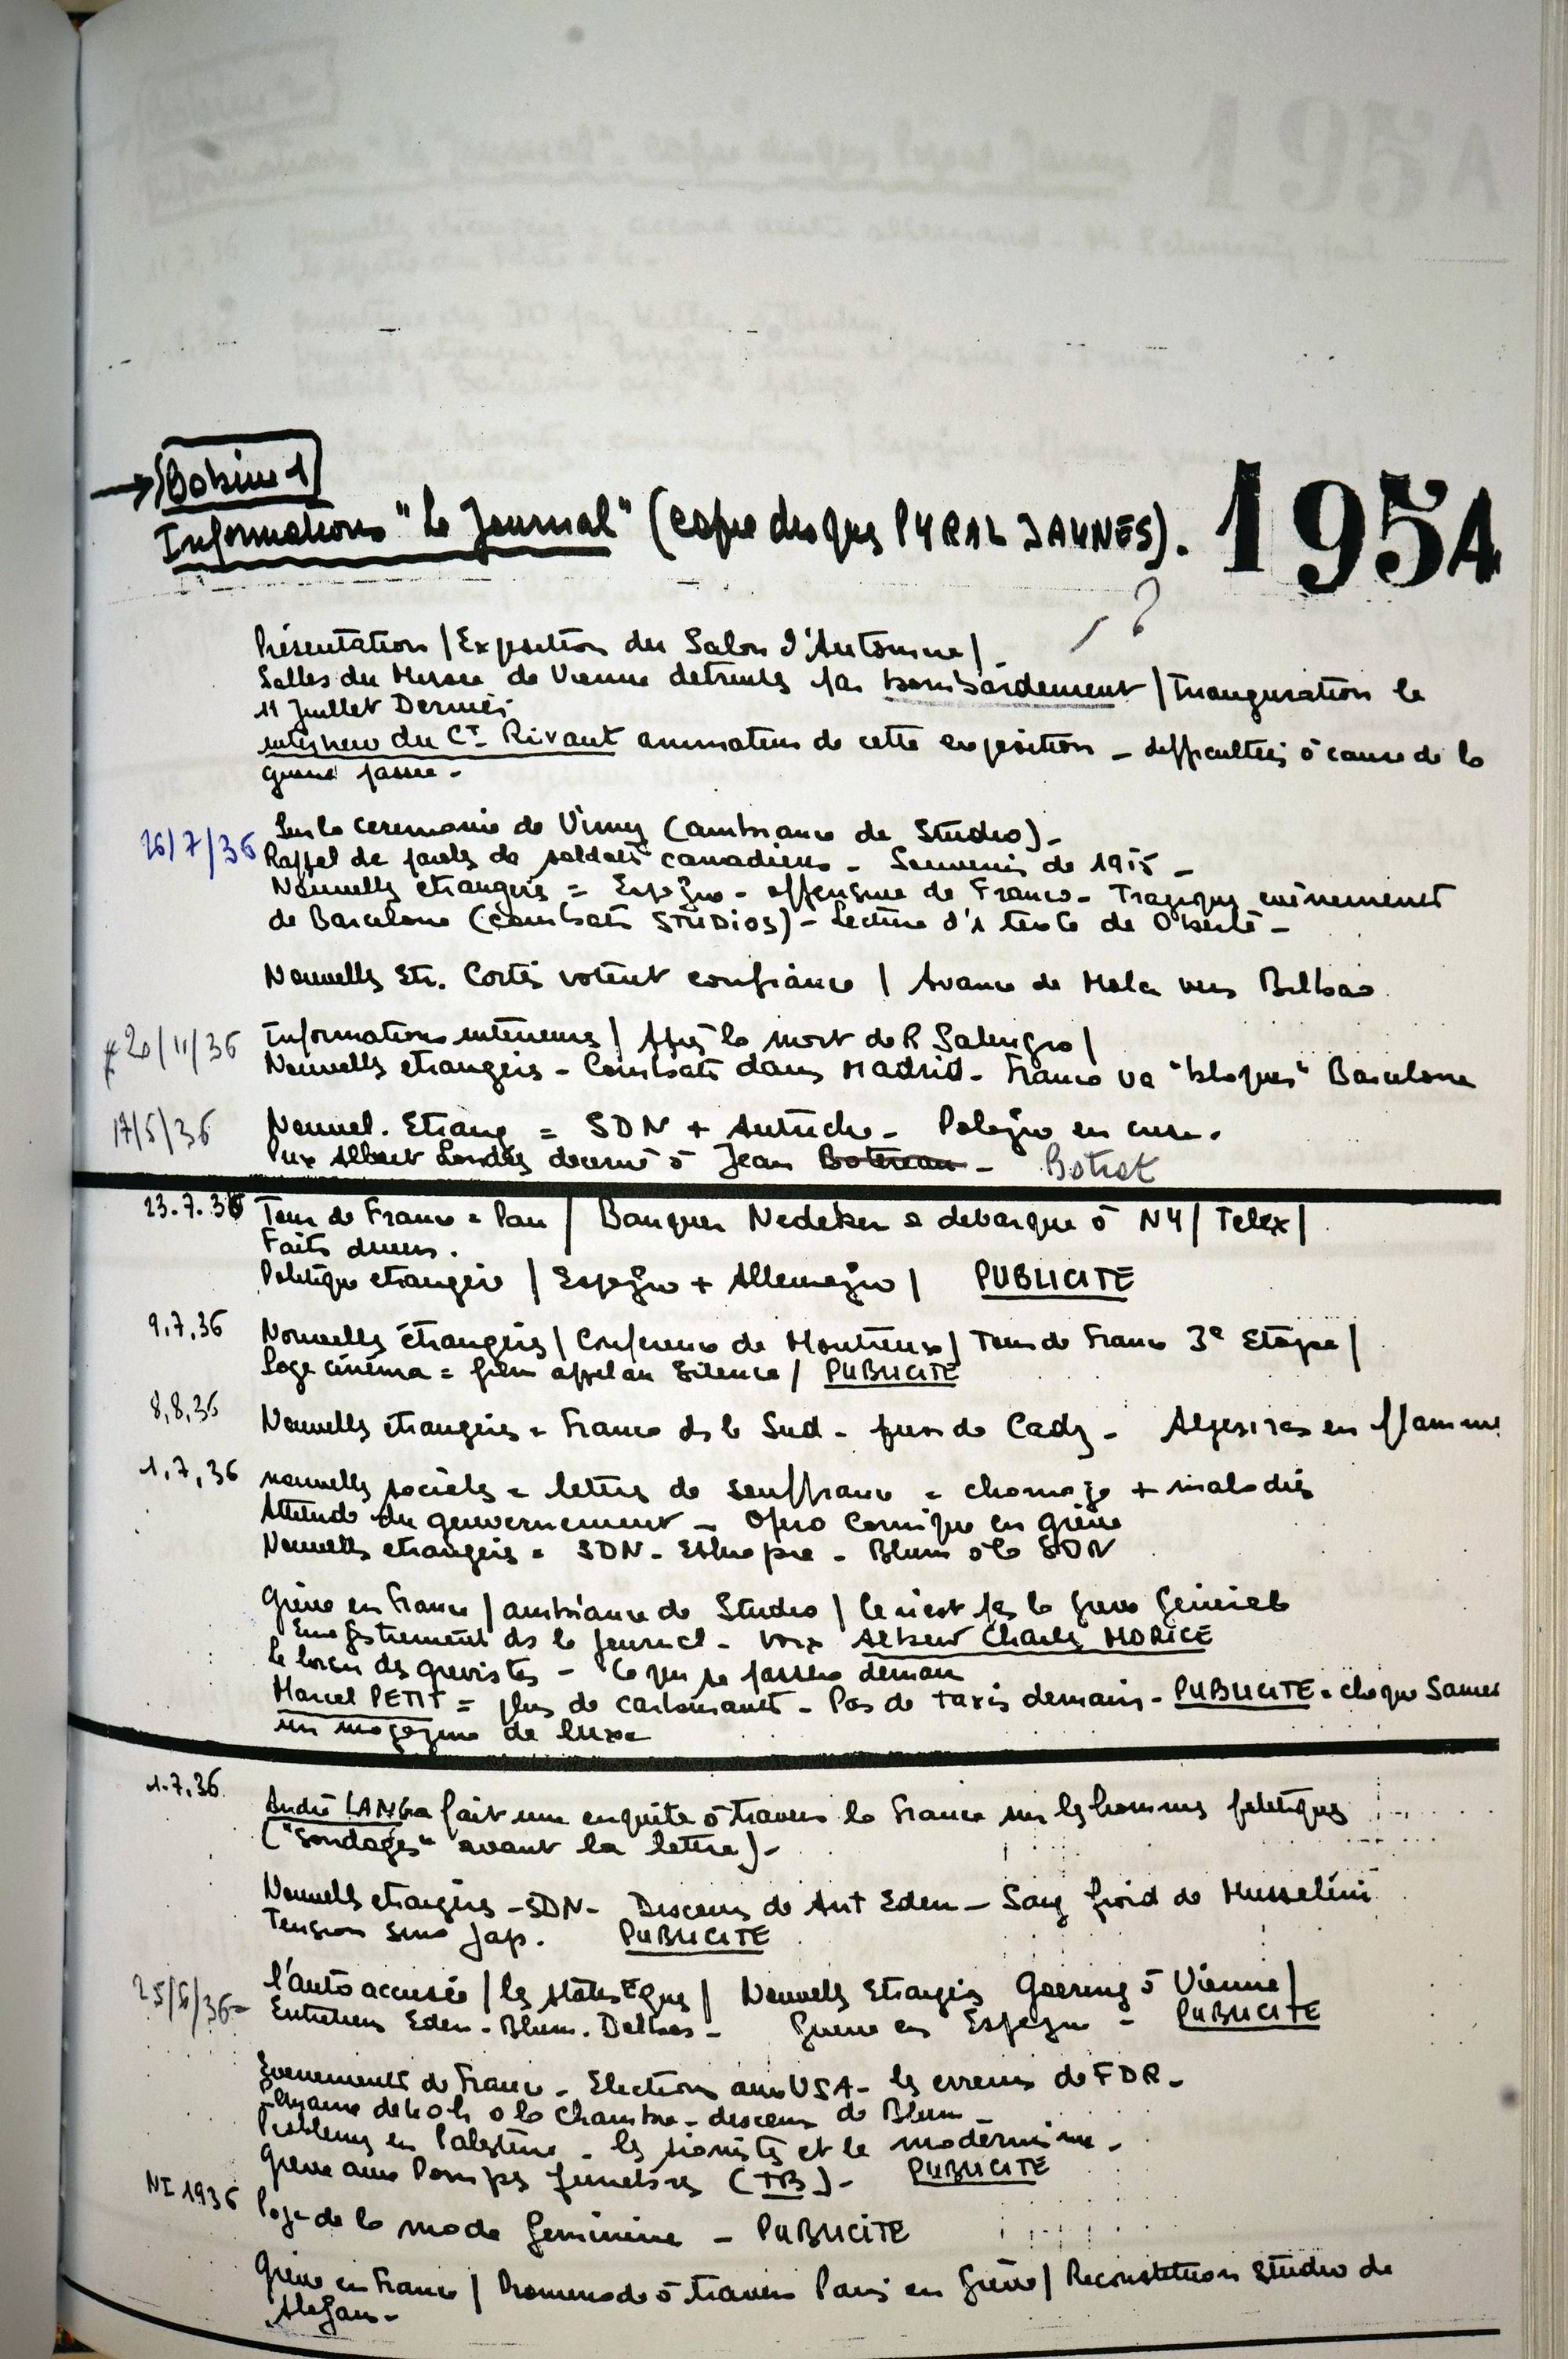 → Bobine 1
Informations "Le Journal" (copie disques PYRAL JAUNES). 195A
?
Présentation / Exposition du Salon d'Automne /
Salles du Musée de Vienne detruits par bombardement / Inauguration le
11 Juillet Dernier
interview du Ct Rivaut animateur de cette exposition - difficultés à cause de la
guerre passée -
26/7/36 Sur la ceremonie de Vimy (ambiance de Studio) -
Rappel de de soldats canadiens - Souvenir de 1915 -
Nouvelles etrangeres = Espagne - offensive de Franco - Tragiques evenements
de Barcelone (combats STUDIOS) - Lecture d'1 texte de
Nouvelles Etr. Cortes votent confiance / Avance de Mola vers Bilbao
20/11/36 Informations interieures / Après la mort de R Salengro /
Nouvelles etrangeres - Combats dans Madrid - Franco va "bloquer" Barcelone
17/5/36 Nouvel. Etrang = SDN + Autriche - Pologne en crise.
Prix Albert Londres decerné à Jean Botereau - Botrot
23.7.36 Tour de France = Pau / Banquier à debarqué à NY / Telex /
Faits divers.
Politique etrangere / Espagne + Allemagne / PUBLICITE
9,7,36 Nouvelles étrangeres / Conference de Montreux / Tour de France 3e Etape /
Page cinéma = film appel au Silence / PUBLICITE
8,8,36 Nouvelles étrangeres = Franco ds le Sud - de Cadix - Algesiras en flamme
1,7,36 nouvelles sociales = lettres de souffrance = chomage + maladies
Attitude du gouvernement - Opera Comique en grève
Nouvelles etrangeres = SDN - Ethiopie - Blum à la SDN
Grève en France / ambiance de Studio / Ce n'est pas la greve générale
Enregistrement ds le journal - Voix Albert Charles MORICE
Le bilan des grevistes - Ce qui se passera demain
Marcel PETIT = plus de carburant - Pas de taxis demain - PUBLICITE = chaque Samedi
un magazine de luxe
1.7.36 André LANG a fait une enquête à travers la France sur les hommes politiques
("sondages" avant la lettre) -
Nouvelles etrangères - SDN - Discours de Ant Eden - Sang froid de Mussolini
Tension sino jap. PUBLICITE
25/6/36 = l'auto accusée / les statistiques / Nouvelles Etrangères Goering à Vienne /
Entretiens Eden - Blum - Delbos - Guerre en Espagne - PUBLICITE
Evenements de France - Elections aux USA - les erreurs de FDR -
Semaine de 40 h à la Chambre - discours de Blum -
Problemes en Palestine - les sionistes et le modernisme -
Greve aux Pompes funebres (TB) - PUBLICITE
NI 1936 Page de la mode feminine - PUBLICITE
Grève en France / Promenade à travers Paris en Grève / Reconstitution studio de